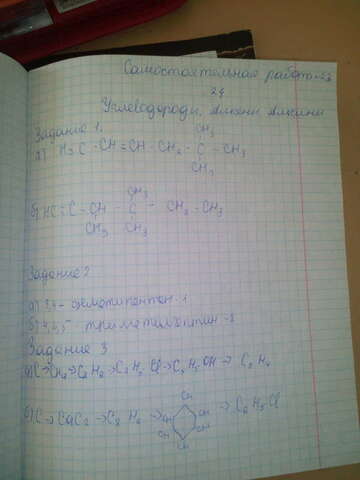 Самостоятельная работа
24
Углеводороды, Алкены Алкины
Задание 1.
CH₃
а) H₃C - CH = CH - CH₂ - C - CH₃
CH₃
CH₃
б) HC ≡ C - CH - C - CH₂ - CH₃
CH₃ CH₃
Задание 2
а) 3,4 - диметилпентен - 1
б) 4,4,5 - триметилоктин - 2
Задание 3
а) C → CH₄ → C₂H₆ → C₂H₅Cl → C₂H₅OH → C₂H₄
б) C → CaC₂ → C₂H₂ → → C₆H₅Cl
CH CH CH CH CH CH